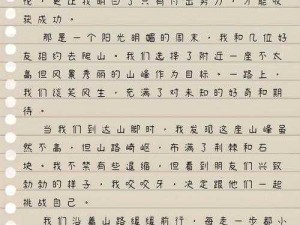 花，更让我明白了只有付出努力，才能收
获成功。
那是一个阳光明媚的周末，我和几位好
友相约去爬山。我们选择了附近一座不太
高但风景秀丽的山峰作为目标。一路上，
我们谈笑风生，充满了对未知的好奇和期
待。
当我们到达山脚时，我发现这座山峰虽
然不高，但山路崎岖，布满了荆棘和石
块。我不禁有些退缩，但看到朋友们兴致
勃勃的样子，我咬咬牙，决定跟他们一起
挑战自己。
我们沿着山路缓缓前行，每走一步都小